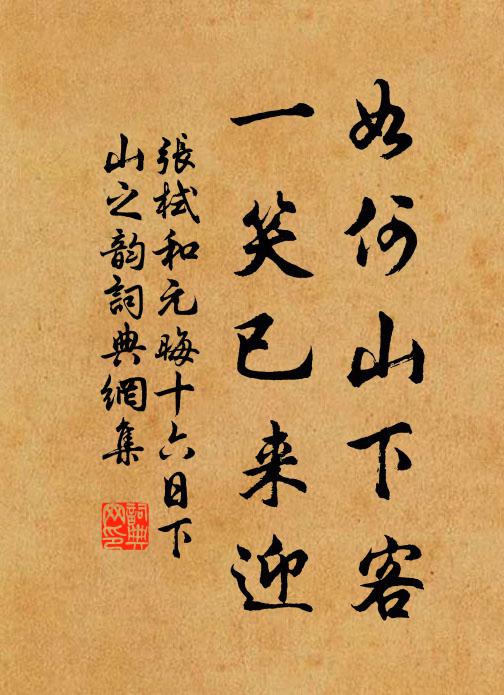 如何山下客
一笑已来迎
張栻和元晦十六日下
山之韵詞典網集
詞典
网印